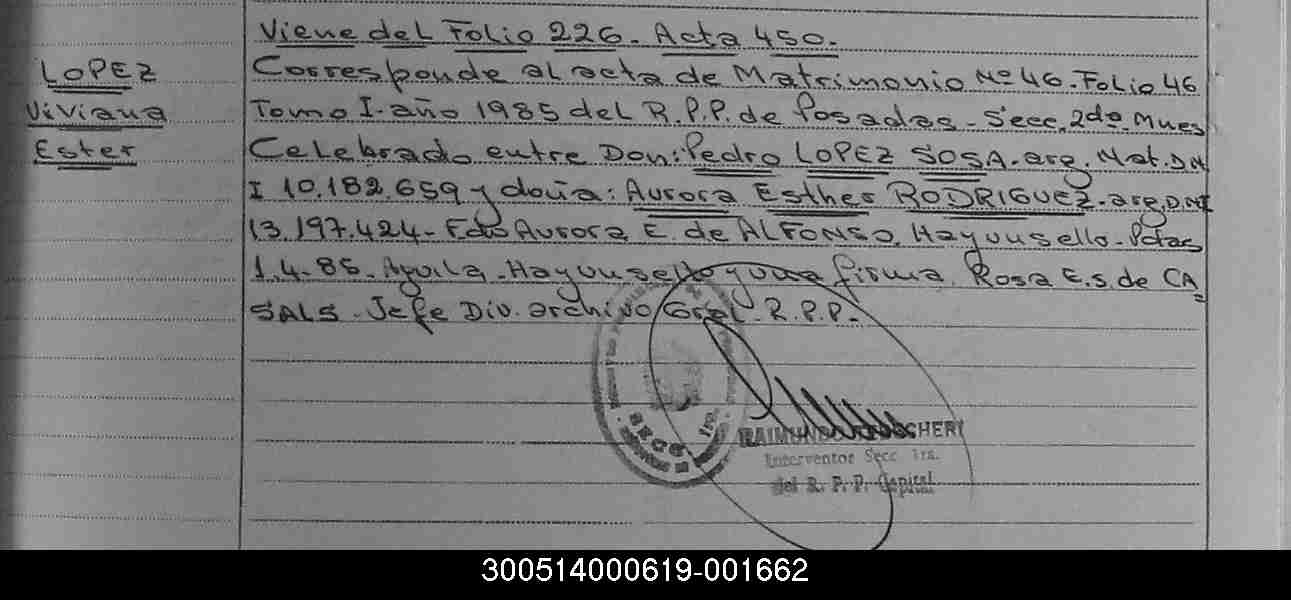 Viene del Folio 226. Acta 450.
LOPEZ
Viviana
Ester
Corresponde al acta de Matrimonio Nº 46. Folio 46
Tomo I. año 1985 del R.P.P. de Posadas. Secc. 2da. Mnes
Celebrado entre Don: Pedro LOPEZ SOSA. arg. Mat. D N
I 10.182.659 y doña: Aurora Esther RODRIGUEZ. arg. D.NI
13.197.424 - Fdo Aurora E. de ALFONSO. Hay un sello. Pdas
1.4.85. Aguila. Hay un sello y una firma. Rosa E.S. de CA
SALS. Jefe Div. archivo Gral. R.P.P.
SECC 1ra.
RAIMUNDO
Interventor Secc 1ra.
del R. P. P. Capital
300514000619-001662